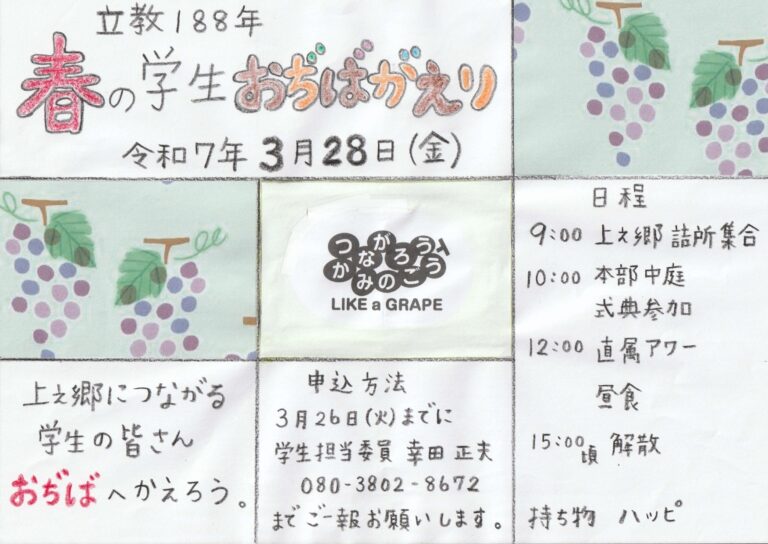 立教188年
春の学生おぢばがえり
令和7年3月28日(金)
つながろう
かみのごう
LIKE a GRAPE
上之郷につながる
学生の皆さん
おぢばへかえろう。
申込方法
3月26日(火)までに
学生担当委員 幸田 正夫
080-3802-8672
までご一報お願いします。
日程
9:00 上之郷 詰所集合
10:00 本部中庭
式典参加
12:00 直属アワー
昼食
15:00頃 解散
持ち物 ハッピ